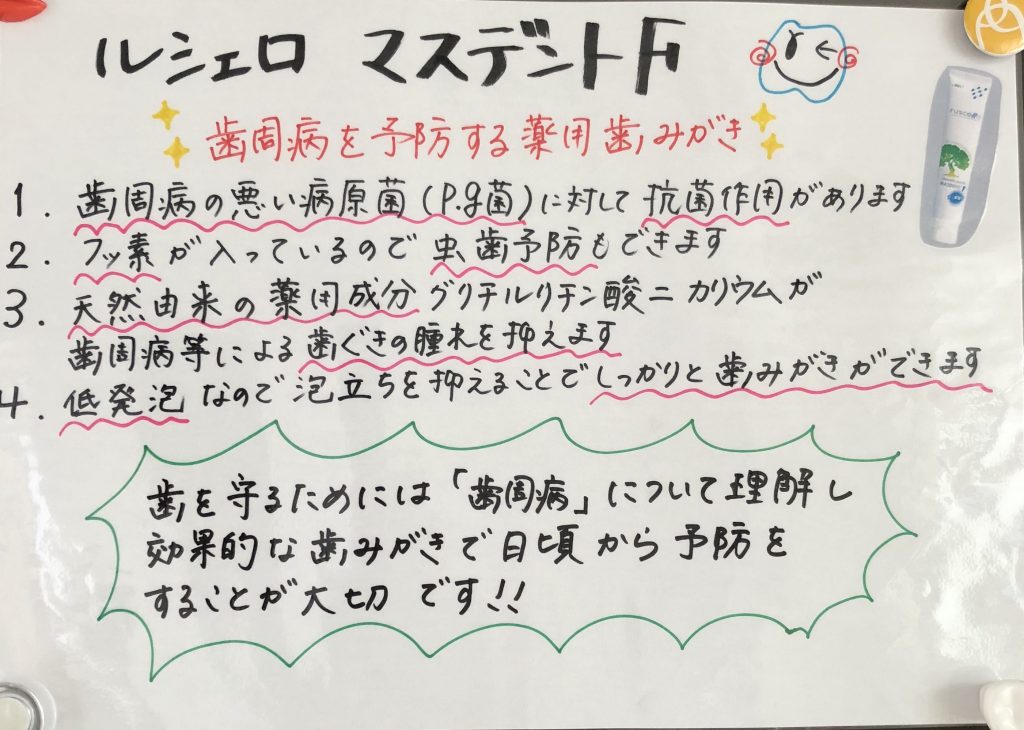 ルシェロ マスデントF
歯周病を予防する薬用歯みがき
1. 歯周病の悪い病原菌(P.g菌)に対して抗菌作用があります
2. フッ素が入っているので虫歯予防もできます
3. 天然由来の薬用成分グリチルリチン酸二カリウムが
歯周病等による歯ぐきの腫れを抑えます
4. 低発泡なので泡立ちを抑えることでしっかりと歯みがきができます
歯を守るためには「歯周病」について理解し
効果的な歯みがきで日頃から予防を
することが大切です!!